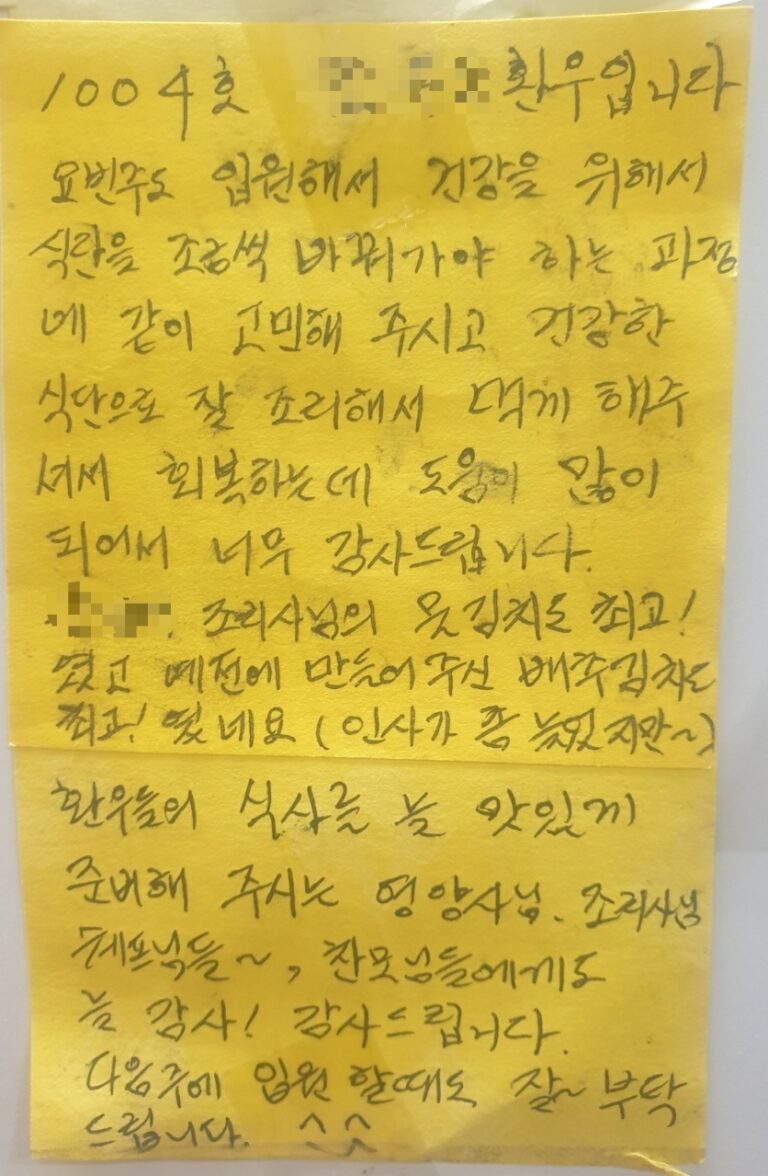 1004호 환우입니다
요번주도 입원해서 건강을 위해서
식단을 조금씩 바꿔가야 하는 과정
에 같이 고민해 주시고 건강한
식단으로 잘 조리해서 먹게 해주
셔서 회복하는데 도움이 많이
되어서 너무 감사드립니다.
조리사님의 못김치도 최고!
였고 예전에 만들어주신 배추김치도
최고! 였네요 (인사가 좀 늦었지만~)
환우들의 식사를 늘 맛있게
준비해 주시는 영양사님. 조리사님
쉐프님들~, 찬모님들에게도
늘 감사! 감사드립니다.
다음주에 입원 할때도 잘~ 부탁
드립니다. ^^